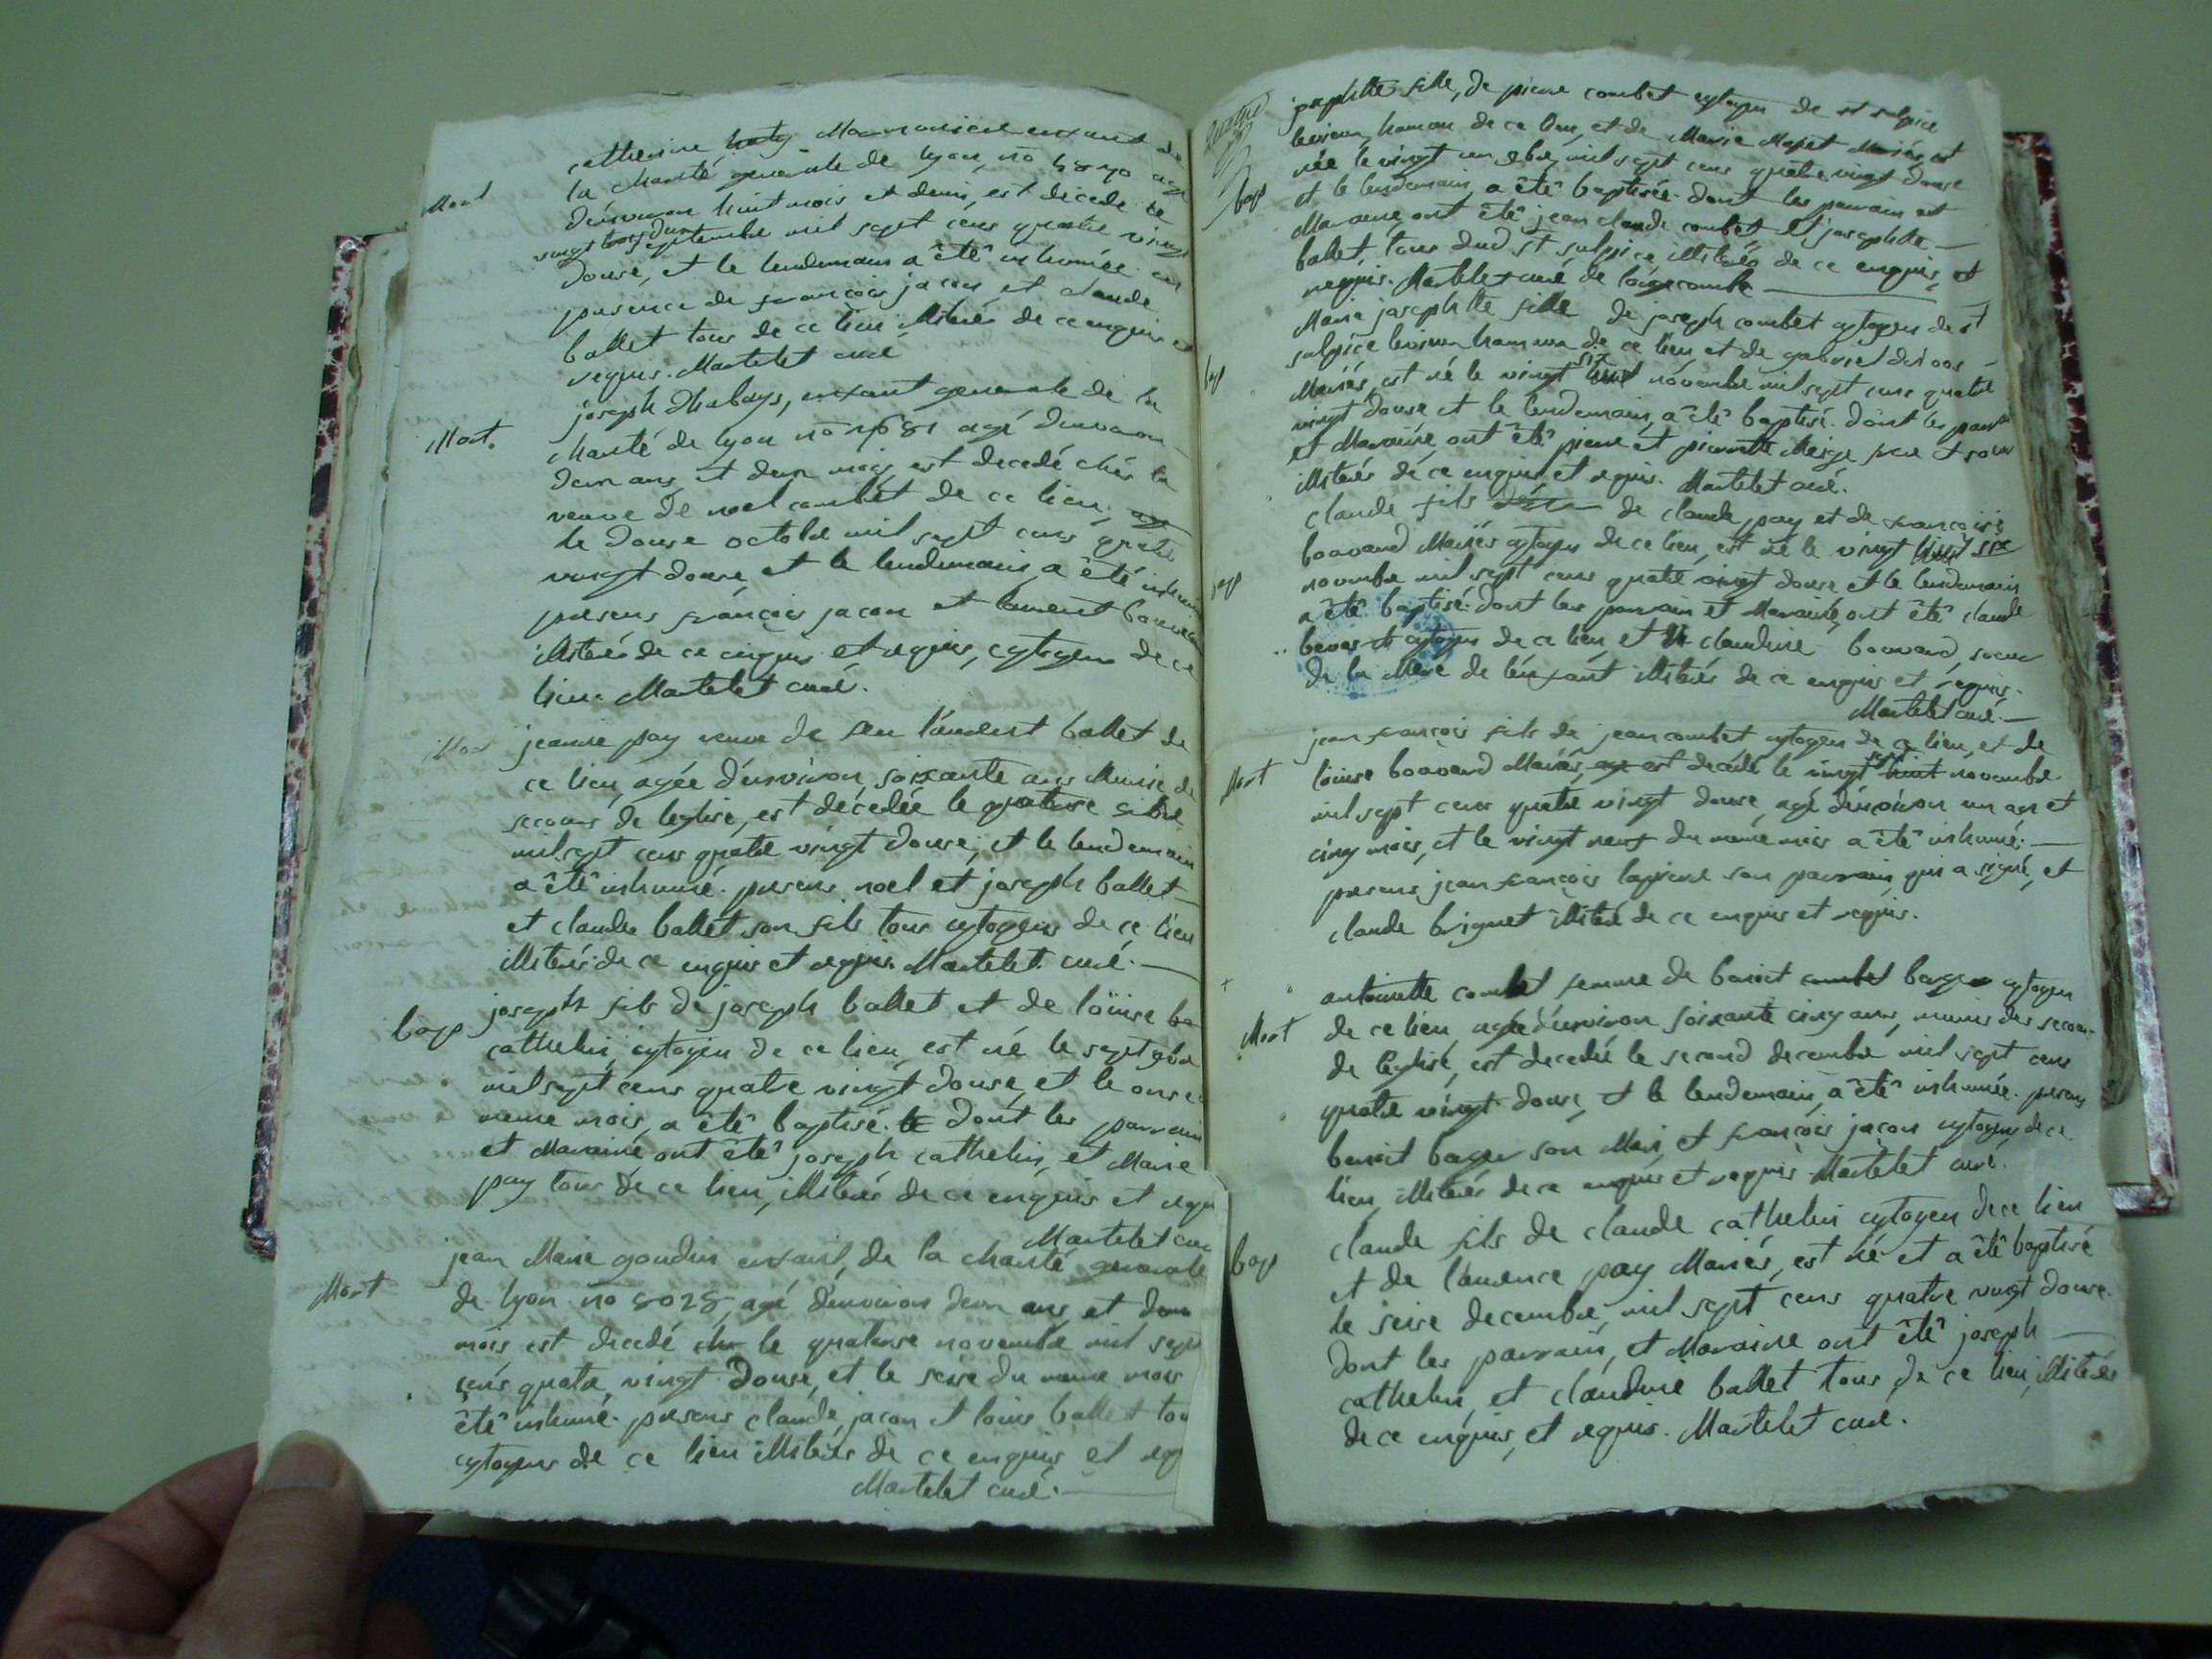 Mort
catherine Marmonier enfant de
la charité generale de lyon, no agé
denviron huit mois et demi, est décédé le
vingt trois septembre mil sept cens quatre vingt
douse, et le lendemain a êtê inhumée en
presence de françois jacon et claude
ballet tous de ce lieu illiterés de ce enquis et
requis. Martelet curé
Mort.
joseph enfant generale de la
charité de lyon no agé denviron
deux ans et deux mois est decedé chés la
veuve de noel combet de ce lieu,
le douse octobre mil sept cens quatre
vingt douse, et le lendemain a êtê inhumé
presens françois jacon et laurent
illiterés de ce enquis et requis, cytoyens de ce
lieu. Martelet curé.
Mort
jeanne pay veuve de feu laurent ballet de
ce lieu, agée d'environ soixante ans Munie de
secours de leglise, est décedée le quatorse
mil sept cens quatre vingt douse, et le lendemain
a êtê inhumé. presens noel et joseph ballet
et claude ballet son fils tous cytoyens de ce lieu
illiterés de ce enquis et requis. Martelet curé.
bap
joseph fils de joseph ballet et de loüise ba
cathelin, cytoyen de ce lieu, est né le sept 9bre
mil sept cens quatre vingt douse, et le onse
meme mois, a êtê baptisé. le dont les parrain
et Maraine ont êtê joseph cathelin, et Marie
pay tous de ce lieu, illiterés de ce enquis et requ
Martelet cur
Mort
jean Marie goudin enfant, de la charité generale
de lyon no 5028, agé denviron deux ans, et deux
mois est decedé le quatorse novembre mil sept
cens quatre vingt Douse, et le seise du meme mois
êtê inhumé. presens claude jacon et louis ballet tou
cytoyens de ce lieu illiterés de ce enquis et req
Martelet curé.
bap
josephtte fille, de pierre combet cytoyen de st sulpice
de ce lieu, et de Marie Mariés, est
née le vingt un 9bre mil sept cens quatre vingt douse
et le lendemain, a êtê baptisée. dont les parrain et
Maraine ont êtê jean claude combet et josephtte
ballet, tous dud st sulpice illiterés de ce enquis, et
requis. Martelet curé de longecombe
bap
Marie josephtte fille de joseph combet cytoyen de st
sulpice de ce lieu, et de gabriel
Mariés, est né le vingt six novembre mil sept cens quatre
vingt douse et le lendemain, a êtê baptisé. dont les parrain
et Maraine, ont êtê pierre et pierrette frere et soeur
illiterés de ce enquis, et requis. Martelet curé.
bap
claude fils de claude pay et de françoise
bouvard Mariés cytoyen de ce lieu, est né le vingt six
novembre mil sept cens quatre vingt douse et le lendemain
a êtê baptisé. dont les parrain et Maraine, ont êtê claude
cytoyen de ce lieu, et claudine bouvard, soeur
de la Mere de lenfant illiterés de ce enquis et requis.
Martelet curé.
Mort
jean françois fils de jean combet cytoyen de ce lieu, et de
loüise bouvard Mariés, est decédé le vingt huit novembre
mil sept cens quatre vingt douse, agé denviron un an et
cinq mois, et le vingt neuf du meme mois a êtê inhumé.
presens jean françois lapierre son parrain, qui a signé, et
claude brignet illiteré de ce enquis et requis.
Mort
antoinette combet femme de benoit combet cytoyen
de ce lieu, agée denviron soixante cinq ans, munie des secours
de leglise, est decedée le second decembre mil sept cens
quatre vingt douse, et le lendemain, a êtê inhumée. presens
benoit son Mari, et françois jacon cytoyens de ce
lieu, illiterés de ce enquis et requis. Martelet curé.
bap
claude fils de claude cathelin cytoyen de ce lieu
et de laurence pay Mariés, est né et a êtê baptisé
le seise decembre mil sept cens quatre vingt douse.
dont les parrain, et Maraine ont êtê joseph
cathelin, et claudine ballet tous de ce lieu, illiterés
de ce enquis, et requis. Martelet curé.